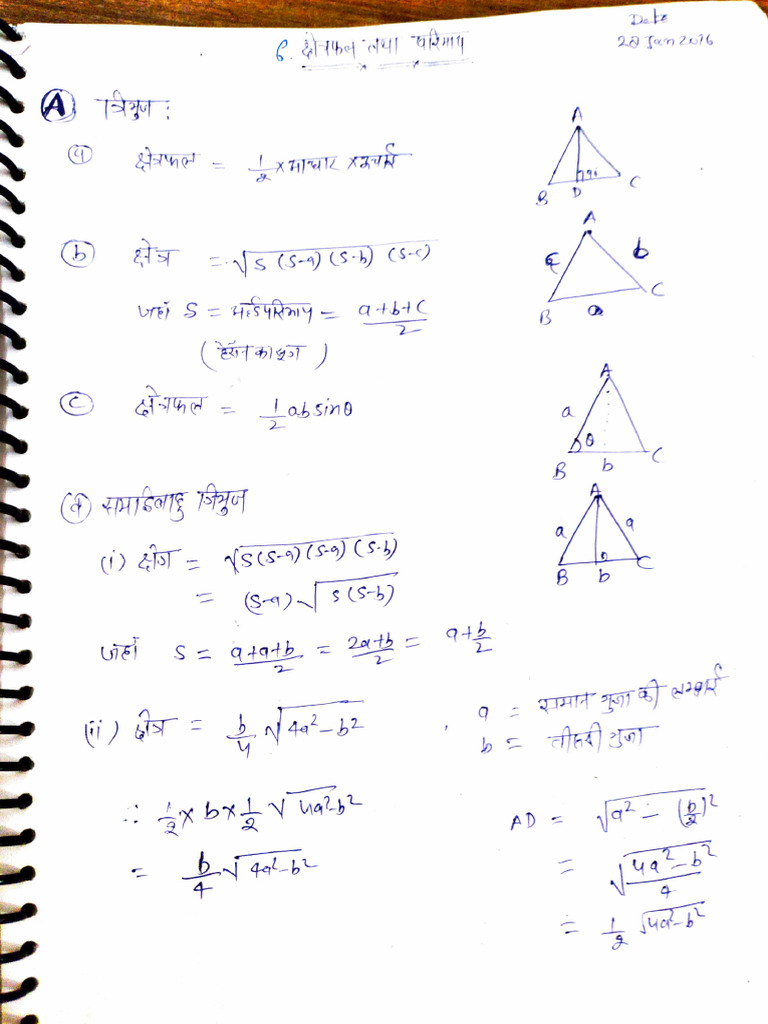 Date
6. क्षेत्रफल तथा परिमाप
28 Jan 2016
A त्रिभुज :
a क्षेत्रफल = 1/2 × आधार × ऊंचाई
A
90
B D C
b क्षेत्र = √s (s-a) (s-b) (s-c)
A
c b
B a C
जहाँ s = अर्द्धपरिमाप = a+b+c/2
(हेरॉन का सूत्र)
c क्षेत्रफल = 1/2 ab sinθ
A
a
θ
B b C
d समद्विबाहु त्रिभुज
A
a a
B b C
(i) क्षेत्र = √s(s-a)(s-a)(s-b)
= (s-a)√s(s-b)
जहाँ s = a+a+b/2 = 2a+b/2 = a+b/2
(ii) क्षेत्र = b/4 √4a²-b²
a = समान भुजा की लम्बाई
b = तीसरी भुजा
∴ 1/2 × b × 1/2 √4a²-b²
= b/4 √4a²-b²
AD = √a² - (b/2)²
= √4a²-b²/4
= 1/2 √4a²-b²